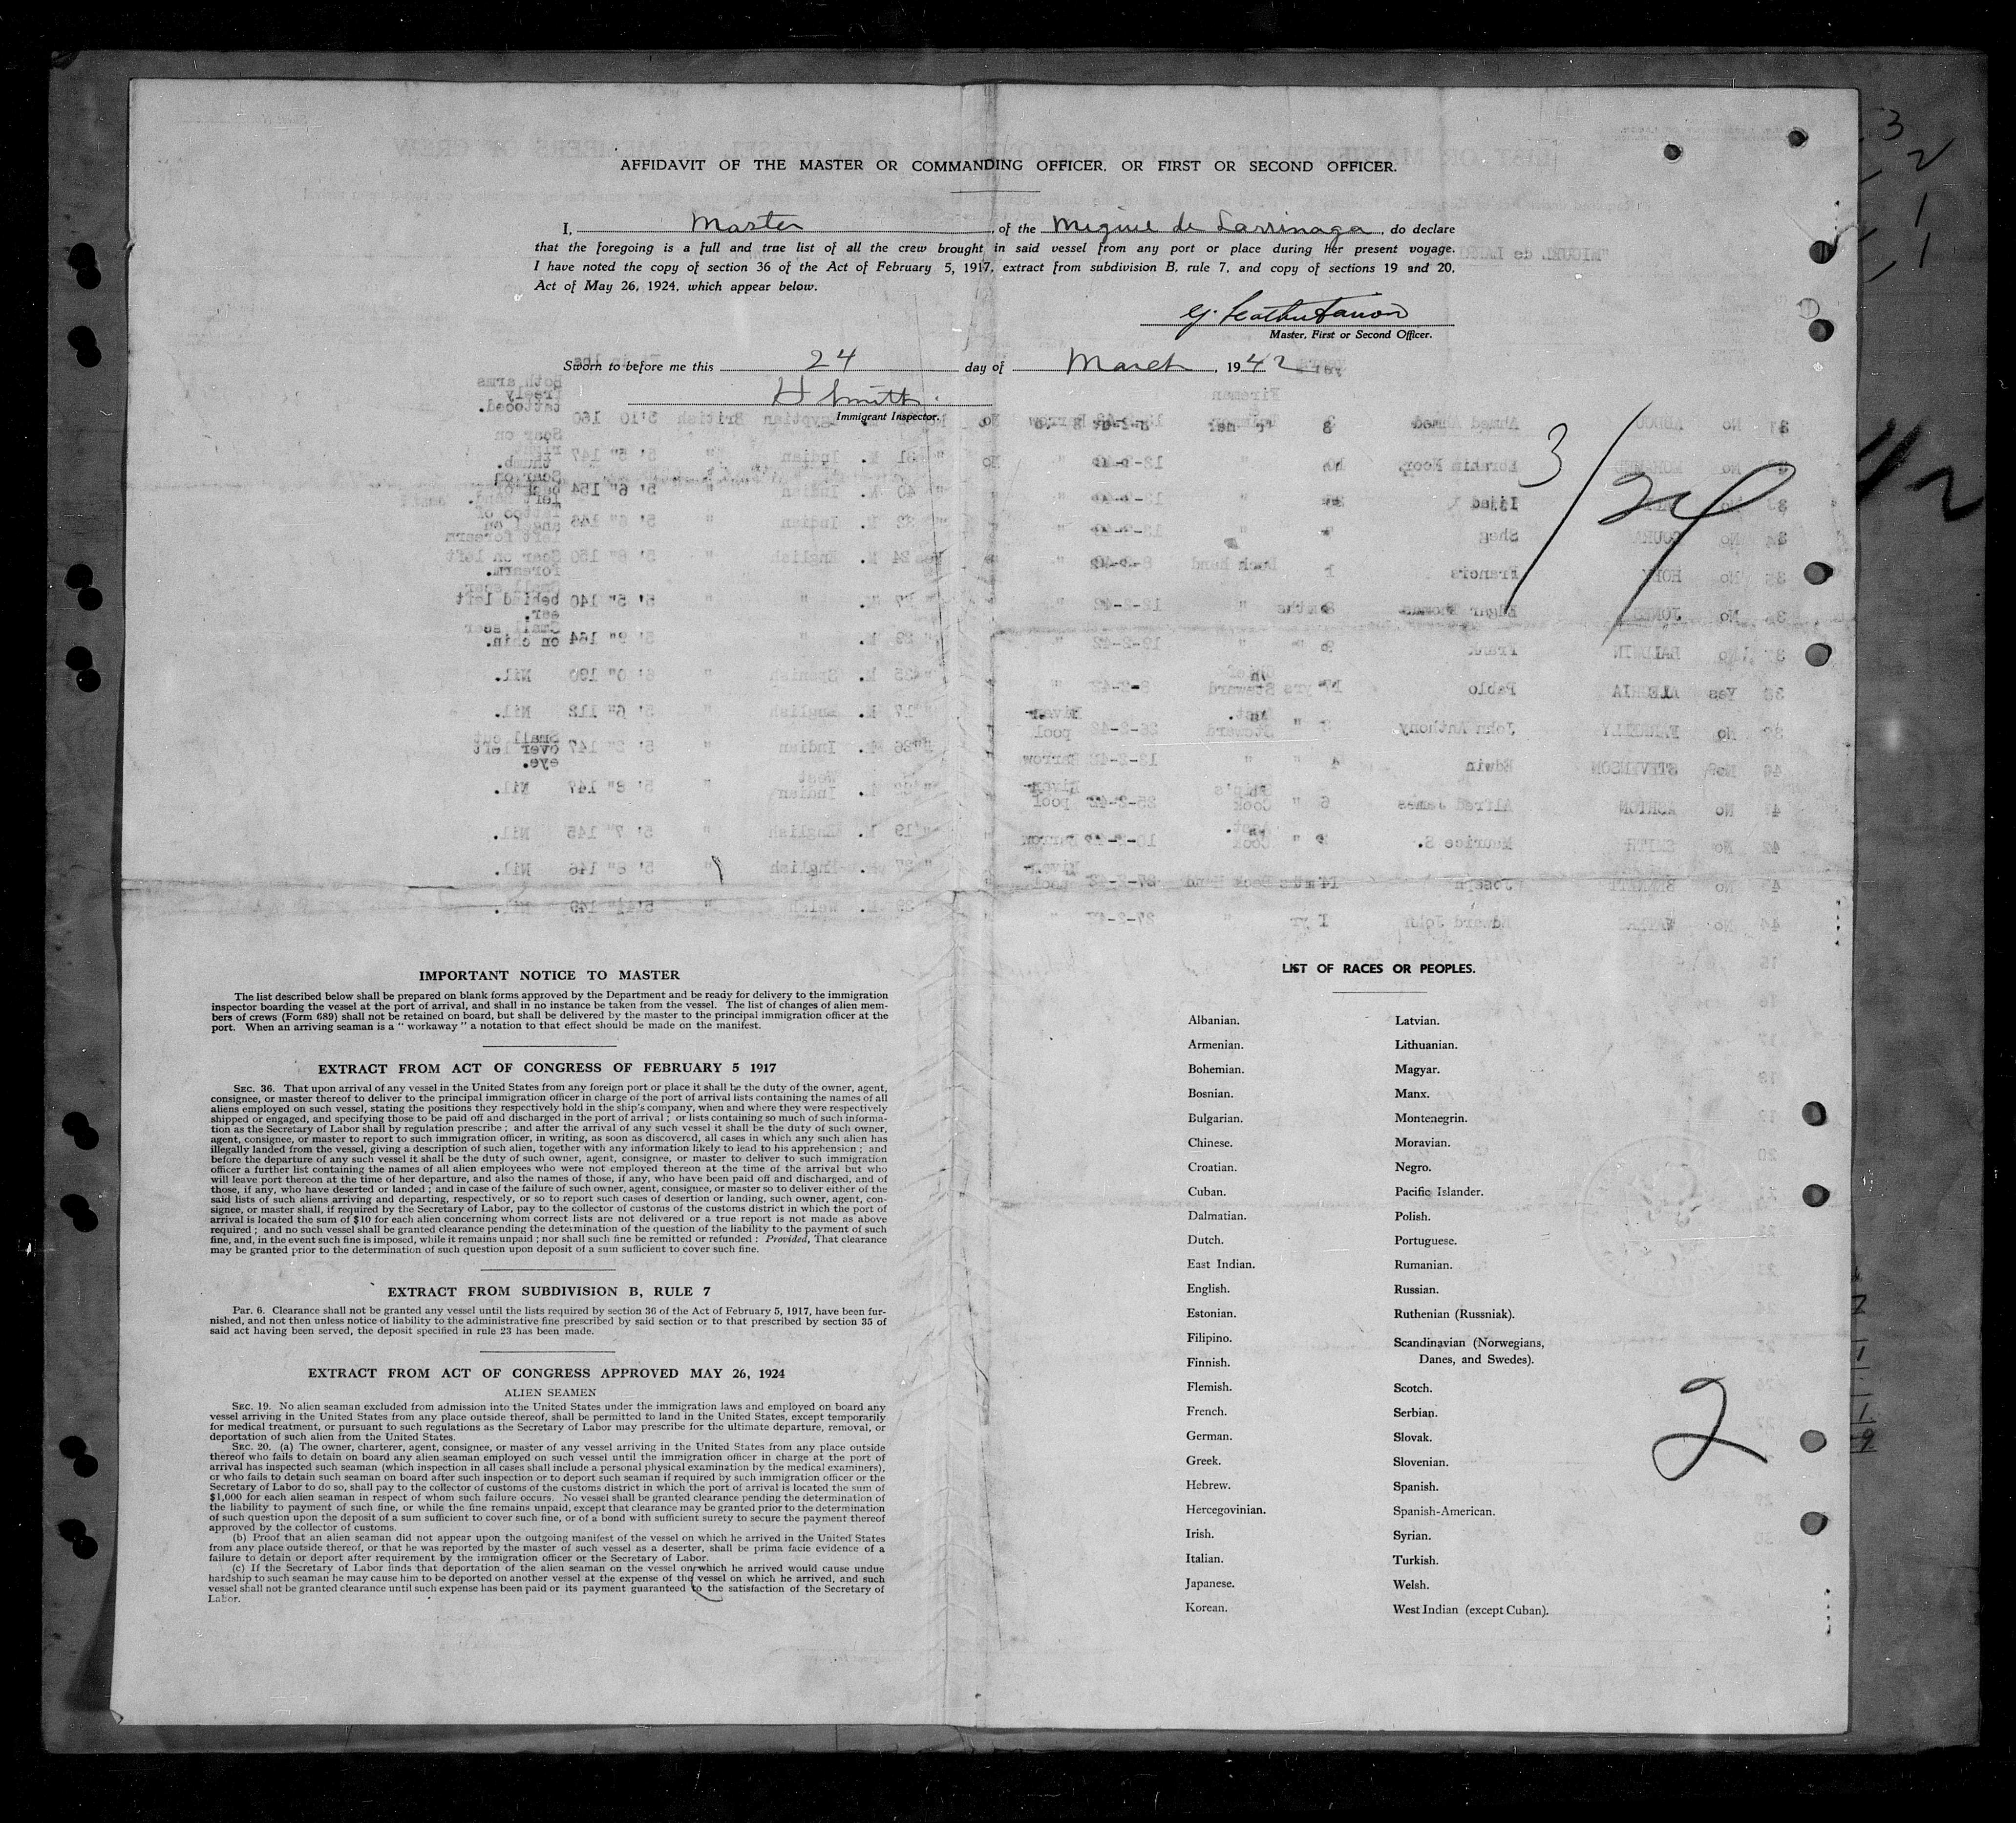 AFFIDAVIT OF THE MASTER OR COMMANDING OFFICER, OR FIRST OR SECOND OFFICER.
I, Master, of the Miguel de Larrinaga, do declare
that the foregoing is a full and true list of all the crew brought in said vessel from any port or place during her present voyage.
I have noted the copy of section 36 of the Act of February 5, 1917, extract from subdivision B, rule 7, and copy of sections 19 and 20,
Act of May 26, 1924, which appear below.
Master, First or Second Officer.
Sworn to before me this 24 day of March, 1942
H Smith.
Immigrant Inspector.
3/24
IMPORTANT NOTICE TO MASTER
The list described below shall be prepared on blank forms approved by the Department and be ready for delivery to the immigration
inspector boarding the vessel at the port of arrival, and shall in no instance be taken from the vessel. The list of changes of alien mem-
bers of crews (Form 689) shall not be retained on board, but shall be delivered by the master to the principal immigration officer at the
port. When an arriving seaman is a " workaway " a notation to that effect should be made on the manifest.
EXTRACT FROM ACT OF CONGRESS OF FEBRUARY 5 1917
SEC. 36. That upon arrival of any vessel in the United States from any foreign port or place it shall be the duty of the owner, agent,
consignee, or master thereof to deliver to the principal immigration officer in charge of the port of arrival lists containing the names of all
aliens employed on such vessel, stating the positions they respectively hold in the ship's company, when and where they were respectively
shipped or engaged, and specifying those to be paid off and discharged in the port of arrival ; or lists containing so much of such informa-
tion as the Secretary of Labor shall by regulation prescribe ; and after the arrival of any such vessel it shall be the duty of such owner,
agent, consignee, or master to report to such immigration officer, in writing, as soon as discovered, all cases in which any such alien has
illegally landed from the vessel, giving a description of such alien, together with any information likely to lead to his apprehension ; and
before the departure of any such vessel it shall be the duty of such owner, agent, consignee, or master to deliver to such immigration
officer a further list containing the names of all alien employees who were not employed thereon at the time of the arrival but who
will leave port thereon at the time of her departure, and also the names of those, if any, who have been paid off and discharged, and of
those, if any, who have deserted or landed ; and in case of the failure of such owner, agent, consignee, or master so to deliver either of the
said lists of such aliens arriving and departing, respectively, or so to report such cases of desertion or landing, such owner, agent, con-
signee, or master shall, if required by the Secretary of Labor, pay to the collector of customs of the customs district in which the port of
arrival is located the sum of $10 for each alien concerning whom correct lists are not delivered or a true report is not made as above
required ; and no such vessel shall be granted clearance pending the determination of the question of the liability to the payment of such
fine, and, in the event such fine is imposed, while it remains unpaid ; nor shall such fine be remitted or refunded : Provided, That clearance
may be granted prior to the determination of such question upon deposit of a sum sufficient to cover such fine.
EXTRACT FROM SUBDIVISION B, RULE 7
PAR. 6. Clearance shall not be granted any vessel until the lists required by section 36 of the Act of February 5, 1917, have been fur-
nished, and not then unless notice of liability to the administrative fine prescribed by said section or to that prescribed by section 35 of
said act having been served, the deposit specified in rule 23 has been made.
EXTRACT FROM ACT OF CONGRESS APPROVED MAY 26, 1924
ALIEN SEAMEN
SEC. 19. No alien seaman excluded from admission into the United States under the immigration laws and employed on board any
vessel arriving in the United States from any place outside thereof, shall be permitted to land in the United States, except temporarily
for medical treatment, or pursuant to such regulations as the Secretary of Labor may prescribe for the ultimate departure, removal, or
deportation of such alien from the United States.
SEC. 20. (a) The owner, charterer, agent, consignee, or master of any vessel arriving in the United States from any place outside
thereof who fails to detain on board any alien seaman employed on such vessel until the immigration officer in charge at the port of
arrival has inspected such seaman (which inspection in all cases shall include a personal physical examination by the medical examiners),
or who fails to detain such seaman on board after such inspection or to deport such seaman if required by such immigration officer or the
Secretary of Labor to do so, shall pay to the collector of customs of the customs district in which the port of arrival is located the sum of
$1,000 for each alien seaman in respect of whom such failure occurs. No vessel shall be granted clearance pending the determination of
the liability to payment of such fine, or while the fine remains unpaid, except that clearance may be granted prior to the determination
of such question upon the deposit of a sum sufficient to cover such fine, or of a bond with sufficient surety to secure the payment thereof
approved by the collector of customs.
(b) Proof that an alien seaman did not appear upon the outgoing manifest of the vessel on which he arrived in the United States
from any place outside thereof, or that he was reported by the master of such vessel as a deserter, shall be prima facie evidence of a
failure to detain or deport after requirement by the immigration officer or the Secretary of Labor.
(c) If the Secretary of Labor finds that deportation of the alien seaman on the vessel on which he arrived would cause undue
hardship to such seaman he may cause him to be deported on another vessel at the expense of the vessel on which he arrived, and such
vessel shall not be granted clearance until such expense has been paid or its payment guaranteed to the satisfaction of the Secretary of
Labor.
LIST OF RACES OR PEOPLES.
Albanian.
Armenian.
Bohemian.
Bosnian.
Bulgarian.
Chinese.
Croatian.
Cuban.
Dalmatian.
Dutch.
East Indian.
English.
Estonian.
Filipino.
Finnish.
Flemish.
French.
German.
Greek.
Hebrew.
Hercegovinian.
Irish.
Italian.
Japanese.
Korean.
Latvian.
Lithuanian.
Magyar.
Manx.
Montenegrin.
Moravian.
Negro.
Pacific Islander.
Polish.
Portuguese.
Rumanian.
Russian.
Ruthenian (Russniak).
Scandinavian (Norwegians,
Danes, and Swedes).
Scotch.
Serbian.
Slovak.
Slovenian.
Spanish.
Spanish-American.
Syrian.
Turkish.
Welsh.
West Indian (except Cuban).
2